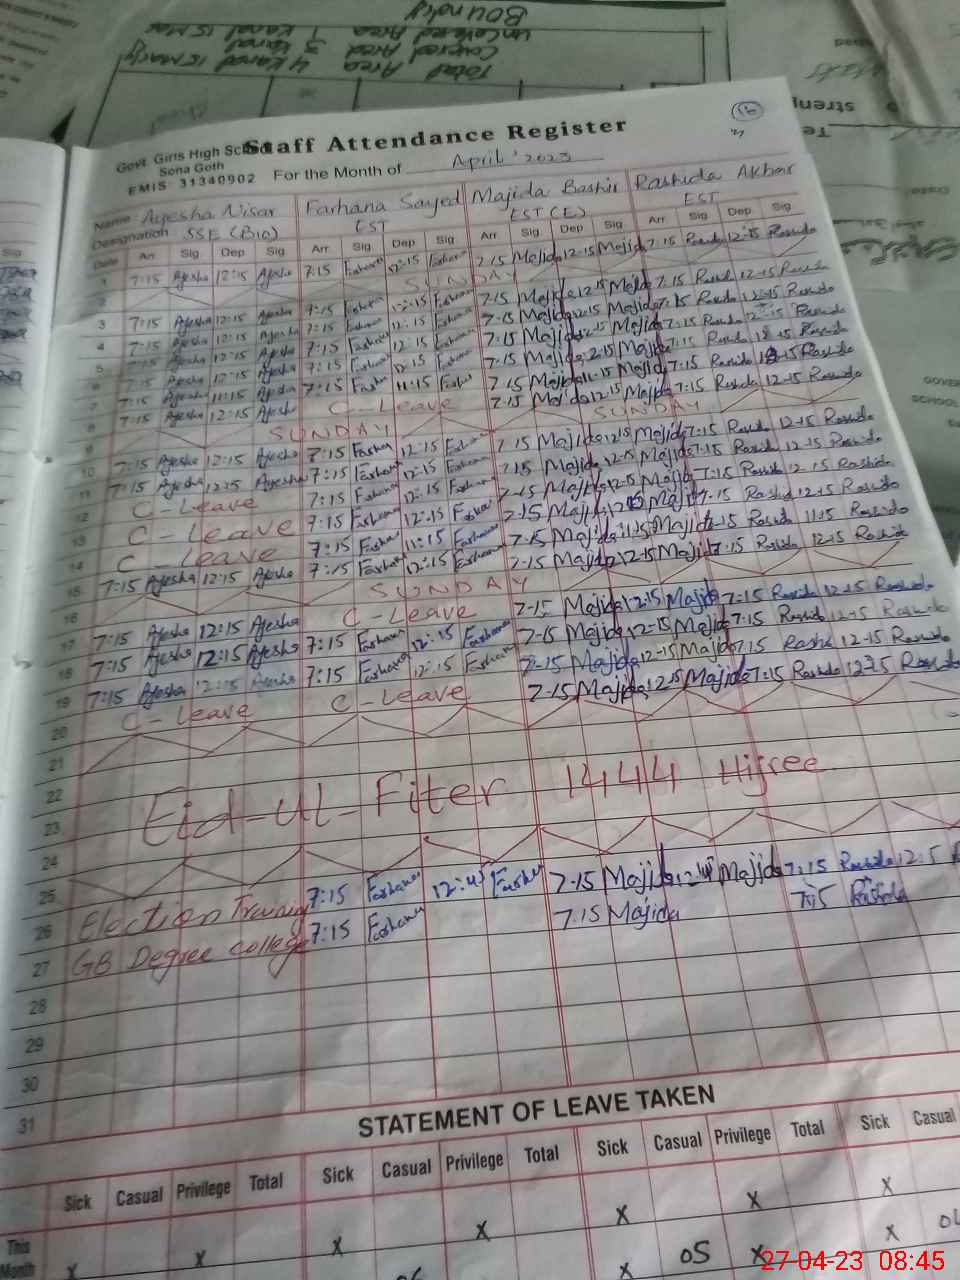 Boundry
uncovered Area 1 Kanal 15 Mar
Covered Area 3 Kanal
Total Area 4 Kanal 15 Marly
streng
Te
GOVE
SCHOOL
16
Govt. Girls High School
Staff Attendance Register
Sona Goth
EMIS 31340902
For the Month of April '2023
Name Ayesha Nisar Farhana Sayed Majida Bashir Rashida Akbar
Designation SSE (Bio) EST EST (E) EST
Date Arr Sig Dep Sig Arr. Sig. Dep Sig Arr. Sig Dep Sig Arr. Sig Dep Sig
1 7:15 Ayesha 12:15 Ayesha 7:15 Farhana 12:15 Farhana 7-15 Majida 12-15 Majida 7:15 Rashida 12:15 Rashida
2 SUNDAY
3 7:15 Ayesha 12:15 Ayesha 7:15 Farhana 12:15 Farhana 7-15 Majida 12-15 Majida 7:15 Rashida 12-15 Rashida
4 7:15 Ayesha 12:15 Ayesha 7:15 Farhana 12:15 Farhana 7-15 Majida 12-15 Majida 7:15 Rashida 12-15 Rashida
5 7:15 Ayesha 12:15 Ayesha 7:15 Farhana 12:15 Farhana 7-15 Majida 12-15 Majida 7:15 Rashida 12-15 Rashida
6 7:15 Ayesha 12:15 Ayesha 7:15 Farhana 12:15 Farhana 7-15 Majida 12-15 Majida 7:15 Rashida 12-15 Rashida
7 7:15 Ayesha 11:15 Ayesha 7:15 Farha 11:15 Farha 7-15 Majida 11-15 Majida 7:15 Rashida Rashida
8 7:15 Ayesha 12:15 Ayesha C-Leave 7-15 Majida 12-15 Majida 7:15 Rashida 12-15 Rashida
9 SUNDAY SUNDAY
10 7:15 Ayesha 12:15 Ayesha 7:15 Farhana 12:15 Farhana 7-15 Majida 12-15 Majida 7:15 Rashida 12-15 Rashida
11 7:15 Ayesha 12:15 Ayesha 7:15 Farhana 12:15 Farhana 7-15 Majida 12-15 Majida 7:15 Rashida 12-15 Rashida
12 C-Leave 7:15 Farhana 12:15 Farhana 7-15 Majida 12-15 Majida 7:15 Rashida 12-15 Rashida
13 C-Leave 7:15 Farhana 12:15 Farhana 7-15 Majida 12-15 Majida 7-15 Rashid 12-15 Rashida
14 C-Leave 7:15 Farhana 11:15 Farhana 7-15 Majida 11:15 Majida 7-15 Rashida 11:15 Rashida
15 7:15 Ayesha 12:15 Ayesha 7:15 Farhana 12:15 Farhana 7-15 Majida 12-15 Majida 7:15 Rashida 12-15 Rashida
16 SUNDAY
17 7:15 Ayesha 12:15 Ayesha C-Leave 7-15 Majida 12-15 Majida 7:15 Rashida 12-15 Rashida
18 7:15 Ayesha 12:15 Ayesha 7:15 Farhana 12:15 Farhana 7-15 Majida 12-15 Majida 7:15 Rashida 12-15 Rashida
19 7:15 Ayesha 12:15 Ayesha 7:15 Farhana 12:15 Farhana 7-15 Majida 12-15 Majida 7:15 Rashida 12-15 Rashida
20 C-Leave C-Leave 7-15 Majida 12-15 Majida 7:15 Rashida Rashida
21
22 Eid-ul-Fiter 1444 Hijree
23
24
25
26 Election Training 7:15 Farhana 12:45 Farhana 7-15 Majida Majida 7:15 Rashida 12:15 R
27 GB Degree college 7:15 Farhana 7:15 Majida 7:15 Rashida
28
29
30
31
STATEMENT OF LEAVE TAKEN
Sick Casual Privilege Total Sick Casual Privilege Total Sick Casual Privilege Total Sick Casual
This Month X X X X X 05 X X X X
27-04-23 08:45